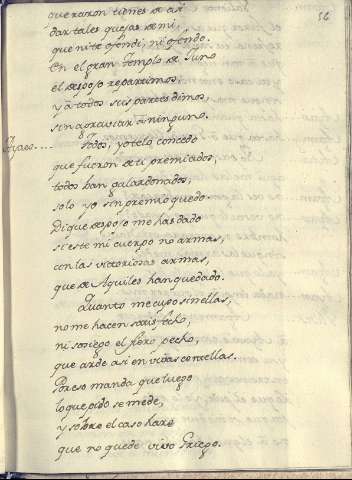 56
que razon tienes de así
dar tales quejas de mi,
que ni te ofendi, ni ofendo.
En el gran templo de Juno
el despojo repartimos,
y à todos sus partes dimos,
sin agraviar à ninguno.
Ayaes.... Todos, yo telo concedo
que fueron de ti premiados,
todos han galardonados,
solo yo sin premio quedo.
Di que despojo me has dado
si este mi cuerpo no armas,
con las victoriosas armas,
que de Aquiles han quedado.
Quanto me cupo sin ellas,
no me hacen satisfecho,
ni sosiego el fiero pecho,
que arde asi en vivas centellas.
Por eso manda que luego
lo que pido se me dé,
y sobre el caso haré
que no quede vivo Griego.